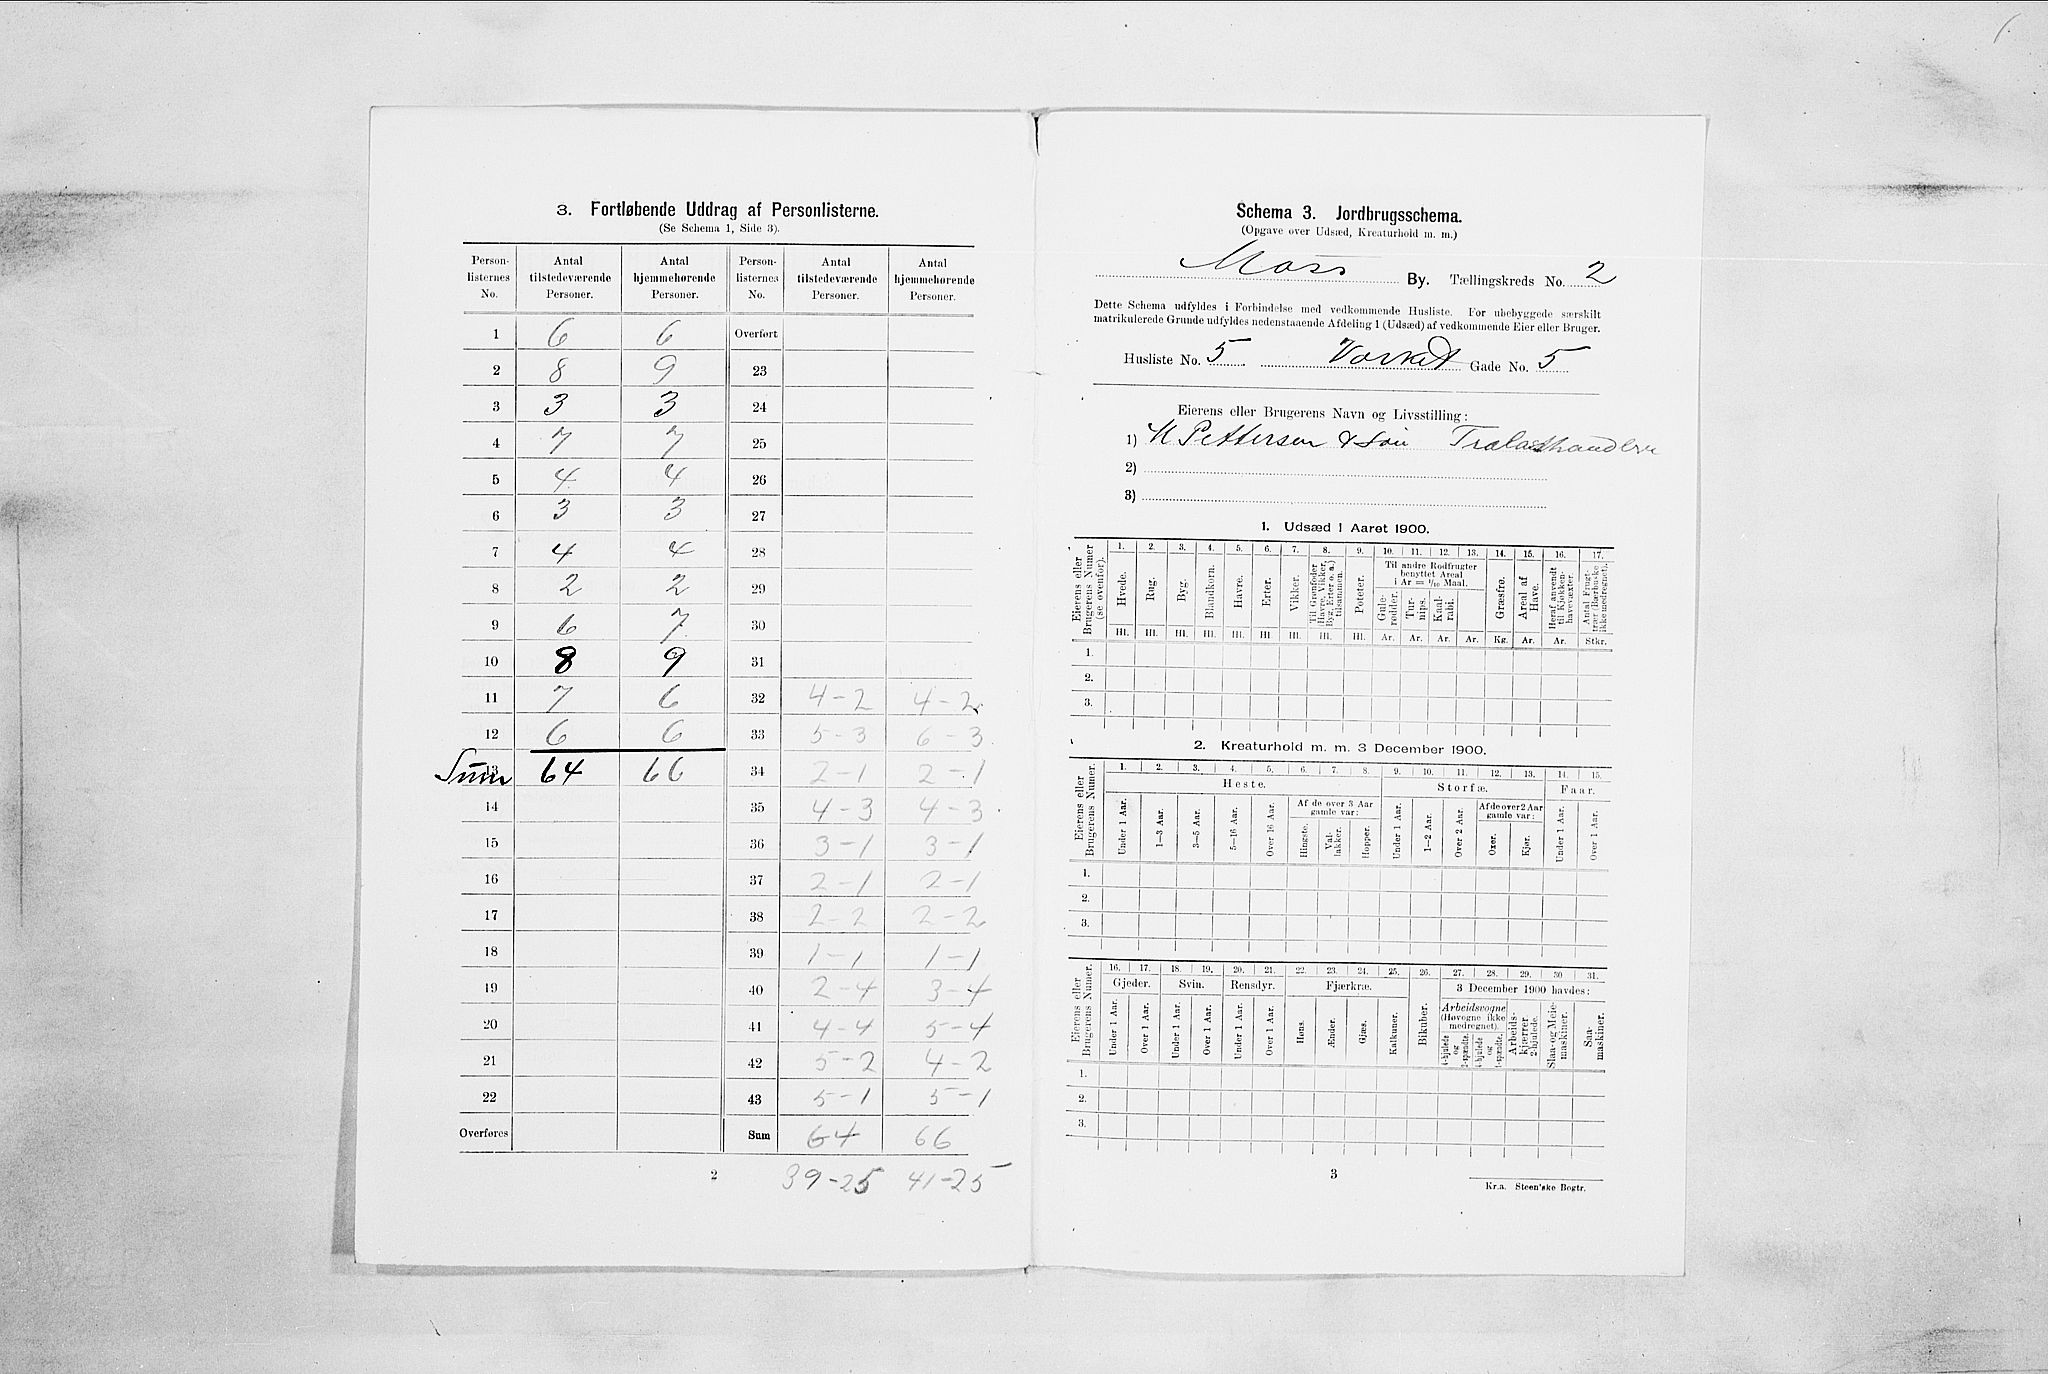 3. Fortløbende Uddrag af Personlisterne.
(Se Schema 1, Side 3).
Person-listernes No. | Antal tilstedeværende Personer. | Antal hjemmehørende Personer. | Person-listernes No. | Antal tilstedeværende Personer. | Antal hjemmehørende Personer.
1 6 6 Overført
2 8 9 23
3 3 3 24
4 7 7 25
5 4 4 26
6 3 3 27
7 4 4 28
8 2 2 29
9 6 7 30
10 8 9 31
11 7 6 32 4-2 4-2
12 6 6 33 5-3 6-3
13 Sum 64 66 34 2-1 2-1
14 35 4-3 4-3
15 36 3-1 3-1
16 37 2-1 2-1
17 38 2-2 2-2
18 39 1-1 1-1
19 40 2-4 3-4
20 41 4-4 5-4
21 42 5-2 4-2
22 43 5-1 5-1
Overføres Sum 64 66
2 39-25 41-25
Schema 3. Jordbrugsschema.
(Opgave over Udsæd, Kreaturhold m. m.)
Moss By. Tællingskreds No. 2
Dette Schema udfyldes i Forbindelse med vedkommende Husliste. For ubebyggede særskilt
matrikulerede Grunde udfyldes nedenstaaende Afdeling 1 (Udsæd) af vedkommende Eier eller Bruger.
Husliste No. 5 Værket Gade No. 5
Eierens eller Brugerens Navn og Livsstilling:
1) M Pettersen & Søn Trælasthandlere
2)
3)
1. Udsæd i Aaret 1900.
Eierens eller Brugerens Numer (se ovenfor).
1. 2. 3. 4. 5. 6. 7. 8. 9. 10. 11. 12. 13. 14. 15. 16. 17.
Hvede. Rug. Byg. Blandkorn. Havre. Erter. Vikker. Til Grønfoder Havre, Vikker, Byg, Erter o. a.) tilsammen. Poteter.
Til andre Rodfrugter benyttet Areal i Ar = 1/10 Maal.
Gule-rødder. Tur-nips. Kaal-rabi. Græsfrø. Areal af Have. Heraf anvendt til Kjøkken-havevæxter. Antal Frugt-trær (Bærbuske ikke medregnet).
Hl. Hl. Hl. Hl. Hl. Hl. Hl. Hl. Hl. Ar. Ar. Ar. Ar. Kg. Ar. Ar. Stkr.
1.
2.
3.
2. Kreaturhold m. m. 3 December 1900.
Eierens eller Brugerens Numer.
1. 2. 3. 4. 5. 6. 7. 8. 9. 10. 11. 12. 13. 14. 15.
Heste. Storfæ. Faar.
Under 1 Aar. 1—3 Aar. 3—5 Aar. 5—16 Aar. Over 16 Aar. Af de over 3 Aar gamle var: Hingste. Val-lakker. Hopper.
Under 1 Aar. 1—2 Aar. Over 2 Aar. Af de over 2 Aar gamle var: Oxer. Kjør. Under 1 Aar. Over 1 Aar.
1.
2.
3.
Eierens eller Brugerens Numer.
16. 17. 18. 19. 20. 21. 22. 23. 24. 25. 26. 27. 28. 29. 30 31.
Gjeder. Svin. Rensdyr. Fjærkræ. Bikuber. 3 December 1900 havdes:
Under 1 Aar. Over 1 Aar. Under 1 Aar. Over 1 Aar. Under 1 Aar. Over 1 Aar. Høns. Ænder. Gjæs. Kalkuner.
Arbeidsvogne (Høvogne ikke medregnet). 4-hjulede og 2-spændte. 4-hjulede og 1-spændte. Arbeids-kjærrer 2-hjulede. Slaa- og Meie-maskiner. Saa-maskiner.
1.
2.
3.
3
Kr.a. Steen'ske Bogtr.